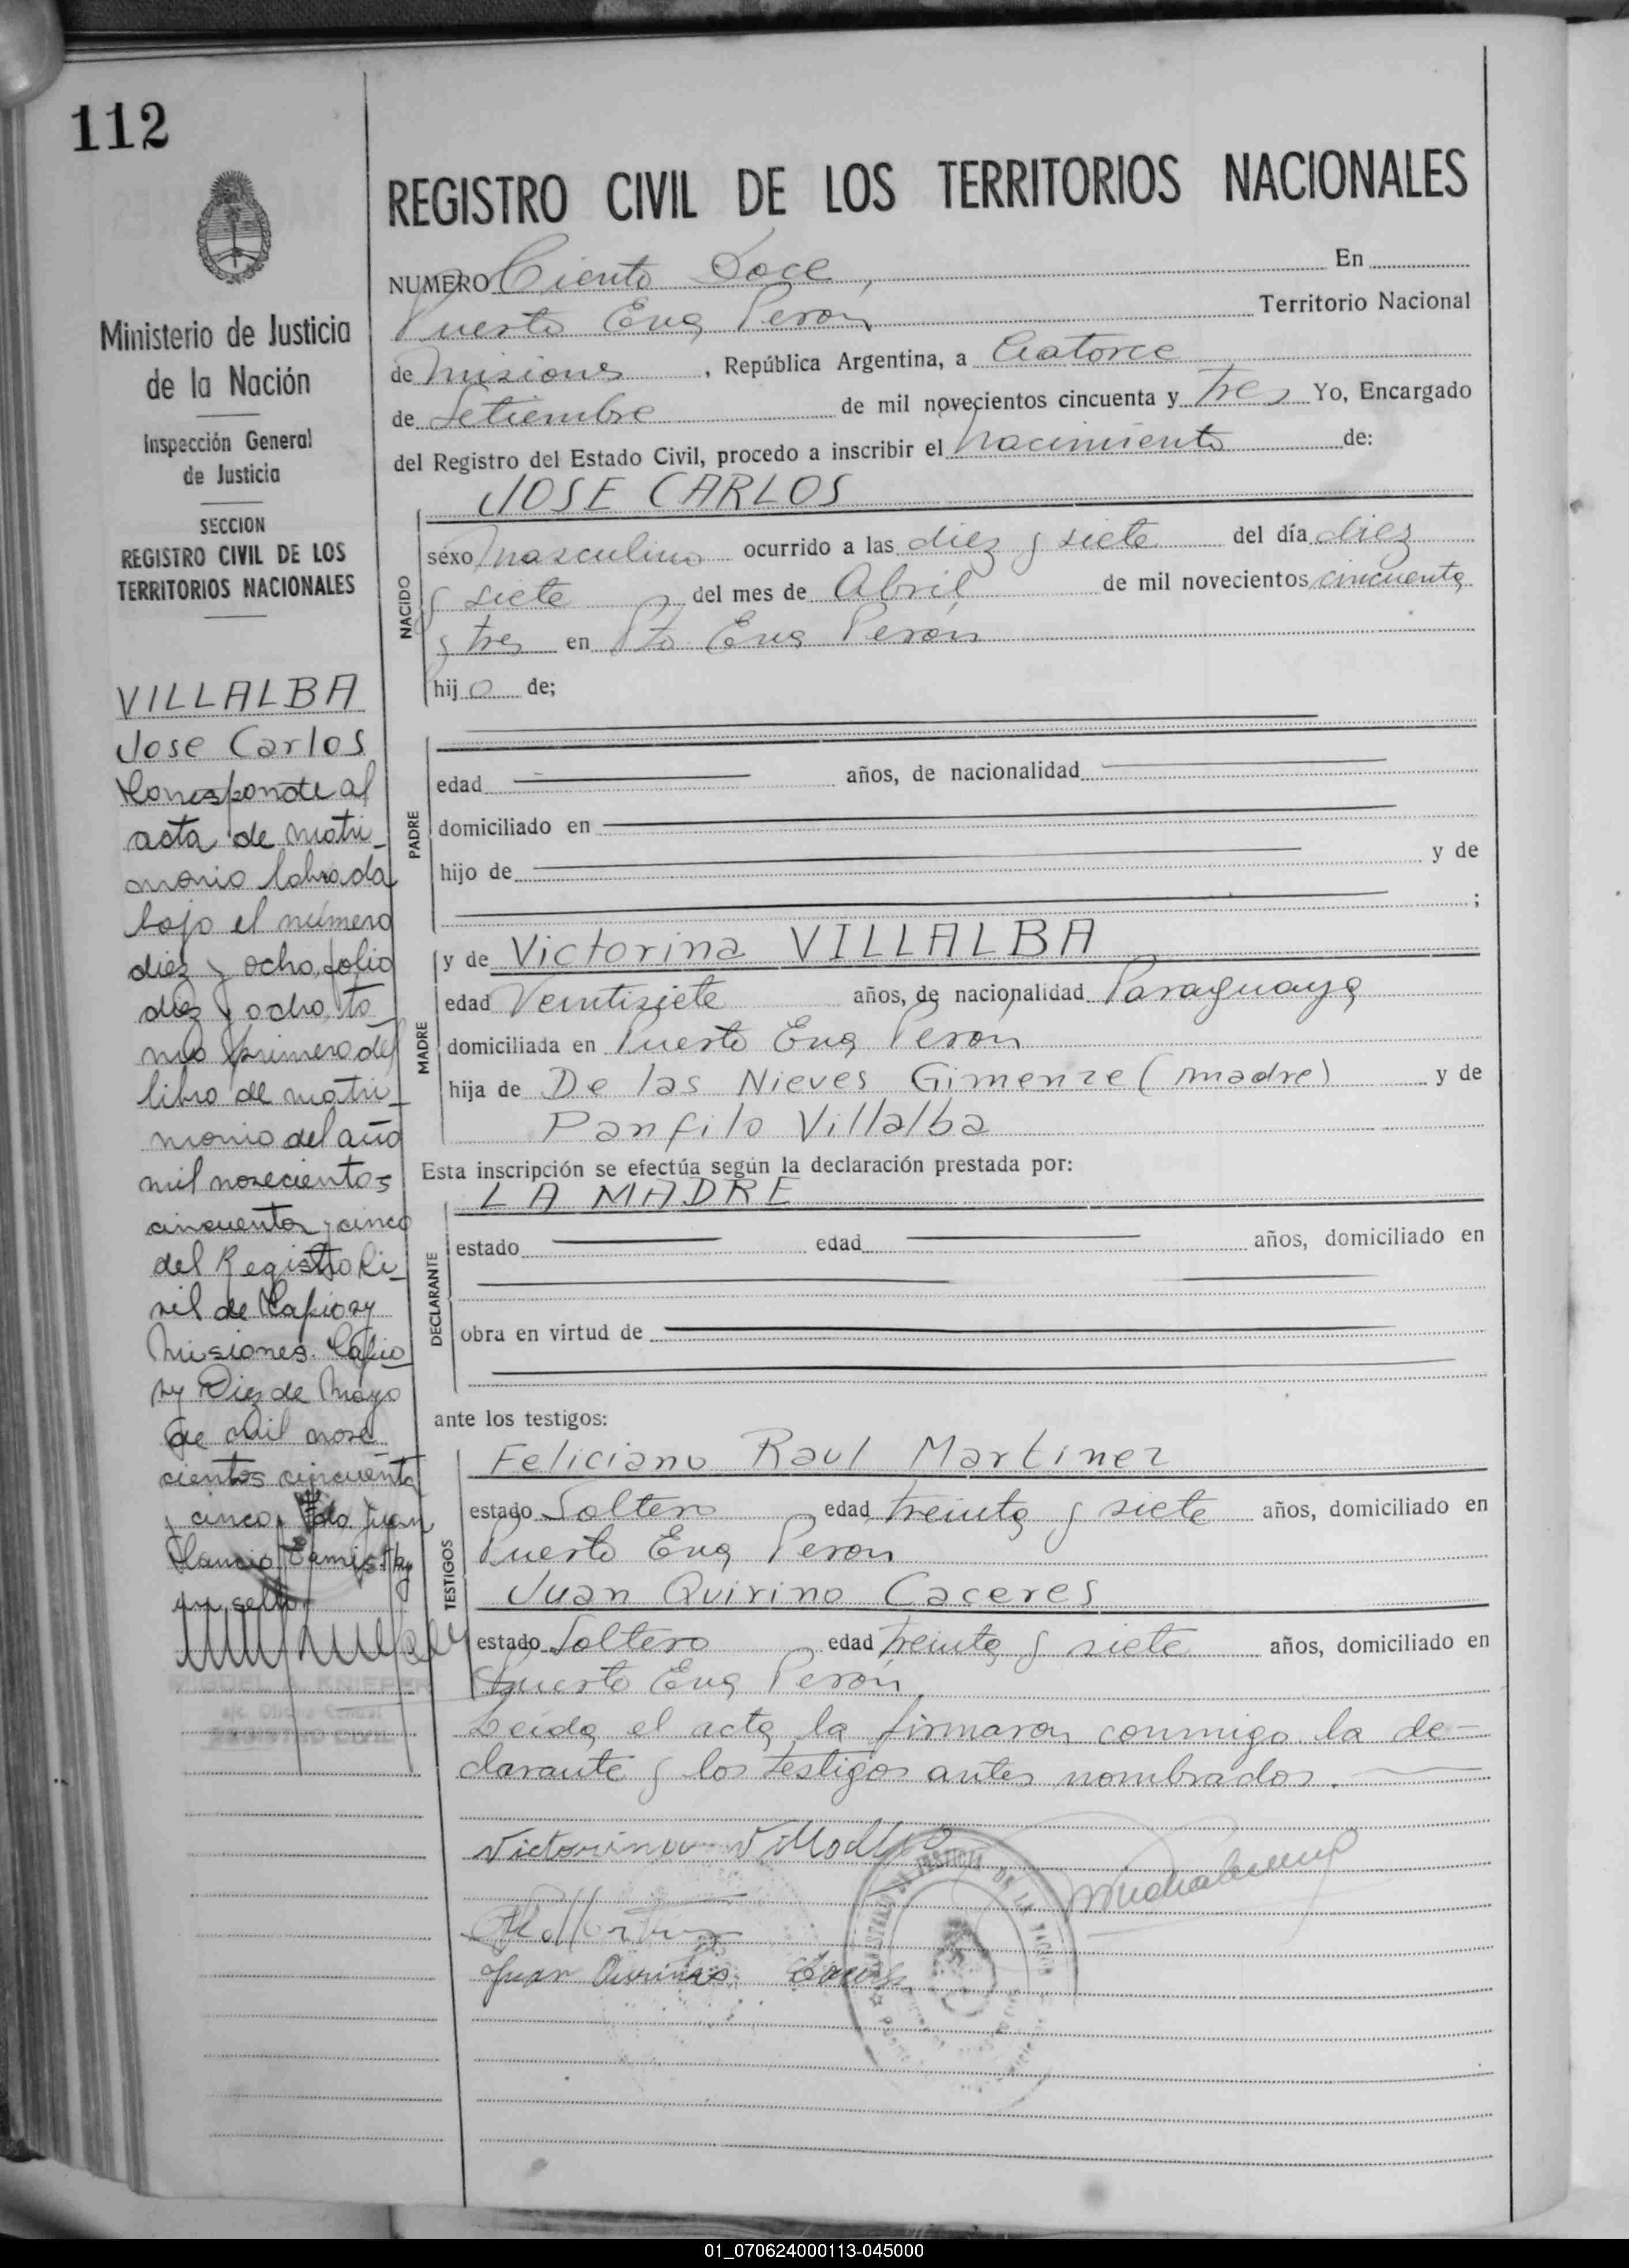 112
Ministerio de Justicia
de la Nación
Inspección General
de Justicia
SECCION
REGISTRO CIVIL DE LOS
TERRITORIOS NACIONALES
VILLALBA
Jose Carlos
Corresponde al
acta de matri-
monio labrada
bajo el número
diez y ocho, folio
diez y ocho, to-
mo primero del
libro de matri-
monio del año
mil novecientos
cincuenta y cinco
del Registro Ci-
vil de Capiovy
Misiones. Capio-
vy Diez de Mayo
de mil nove-
cientos cincuenta
y cinco. Fdo Juan
un sello
REGISTRO CIVIL
REGISTRO CIVIL DE LOS TERRITORIOS NACIONALES
NUMERO Ciento Doce, En
Puerto Eva Perón Territorio Nacional
de Misiones, República Argentina, a Catorce
de Setiembre de mil novecientos cincuenta y tres Yo, Encargado
del Registro del Estado Civil, procedo a inscribir el nacimiento de:
JOSE CARLOS
NACIDO
sexo masculino ocurrido a las diez y siete del día diez
y siete del mes de Abril de mil novecientos cincuenta
y tres en Pto Eva Perón
hijo de;
PADRE
edad años, de nacionalidad
domiciliado en
hijo de y de
;
MADRE
y de Victorina VILLALBA
edad Veintisiete años, de nacionalidad Paraguaya
domiciliada en Puerto Eva Perón
hija de De las Nieves Gimenze (madre) y de
Panfilo Villalba
Esta inscripción se efectúa según la declaración prestada por:
LA MADRE
DECLARANTE
estado edad años, domiciliado en
obra en virtud de
ante los testigos:
TESTIGOS
Feliciano Raul Martinez
estado Soltero edad treinta y siete años, domiciliado en
Puerto Eva Peron
Juan Quirino Caceres
estado Soltero edad treinta y siete años, domiciliado en
Puerto Eva Perón
Leida el acta la firmaron conmigo la de-
clarante y los testigos antes nombrados.
Victorina Villalba
Juan Quirino Caceres
01_070624000113-045000